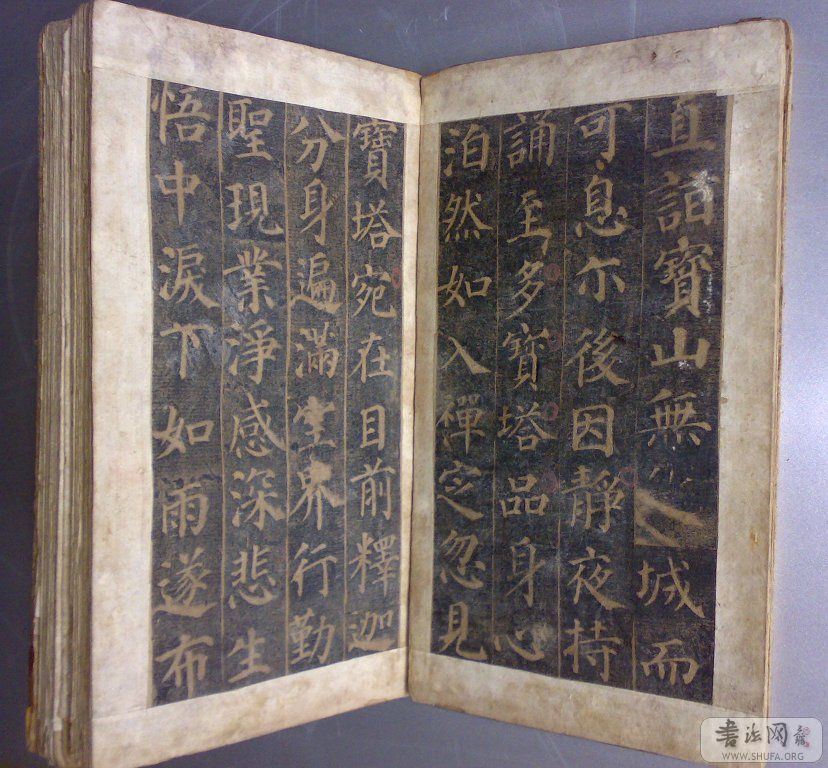 直詣寶山無城而
可息尒後因靜夜持
誦至多寶塔品身心
泊然如入禪定忽見
寶塔宛在目前釋迦
分身遍滿空界行勤
聖現業淨感深悲生
悟中淚下如雨遂布
書法网
WWW.SHUFA.ORG